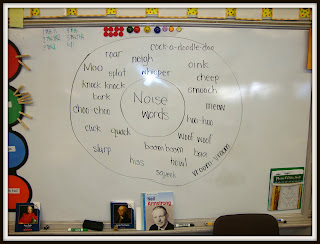 cock-a-doodle-doo
roar
neigh
oink
Moo
splat
whisper
cheep
knock knock
smooch
bark
Noise
words
meow
choo-choo
hoo-hoo
click
quack
woof woof
slurp
boom boom
baa
hiss
howl
vroom vroom
squeak
Neil
Armstrong